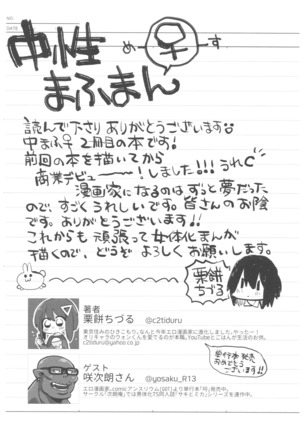 NO.
DATE
中性
めす
まふまん
読んで下さり ありがとうございます
中まふ♀2冊目の本です!
前回の本を描いてから
商業デビューー!しました!!!うれC
漫画家になるのはずっと夢だった
ので、すごくうれしいです。皆さんのお陰
です。ありがとうございます!!
これからも 頑張って女体化まんが
描くので、どうぞ よろしくお願いします。
栗餅
ちづる
著者
栗餅ちづる @c2tiduru
東京住みのひきこもり。なんと今年エロ漫画家に進化しました。やったー!
ぎりキャラのウォンくんを愛でるのが本職。YouTubeとごはんが生活のお供。
c2tiduru@yahoo.co.jp
ゲスト
咲次朗さん @yosaku_R13
エロ漫画家。comicアンスリウム(GOT)より単行本「号」発売中。
サークル「次朗庵」では男体化TS同人誌「サキとミカ」シリーズを連作中。
単行本 発売
おめでとう
ございます!!